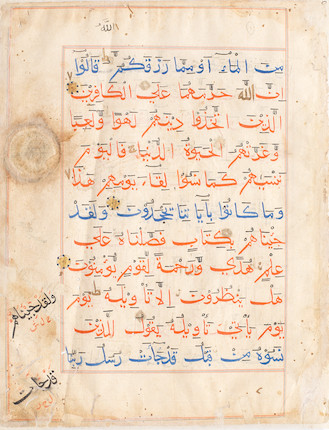 الله
مِنَ الْمَاءِ أَوْ مِمَّا رَزَقَكُمُ قَالُوا
إِنَّ اللَّهَ حَرَّمَهُمَا عَلَى الْكَافِرِينَ
الَّذِينَ اتَّخَذُوا دِينَهُمْ لَهْوًا وَلَعِبًا
وَغَرَّتْهُمُ الْحَيٰوةُ الدُّنْيَا فَالْيَوْمَ
نَنْسٰيهُمْ كَمَا نَسُوا لِقَاءَ يَوْمِهِمْ هَذَا
وَمَا كَانُوا بِآيَاتِنَا يَجْحَدُونَ وَلَقَدْ
جِئْنَاهُمْ بِكِتَابٍ فَصَّلْنَاهُ عَلَى
عِلْمٍ هُدًى وَرَحْمَةً لِقَوْمٍ يُؤْمِنُونَ
هَلْ يَنْظُرُونَ إِلَّا تَأْوِيلَهُ يَوْمَ
يَوْمَ يَأْتِي تَأْوِيلُهُ يَقُولُ الَّذِينَ
نَسُوهُ مِنْ قَبْلُ قَدْ جَاءَتْ رُسُلُ رَبِّنَا
ولقد جئناهم
قد جاءت